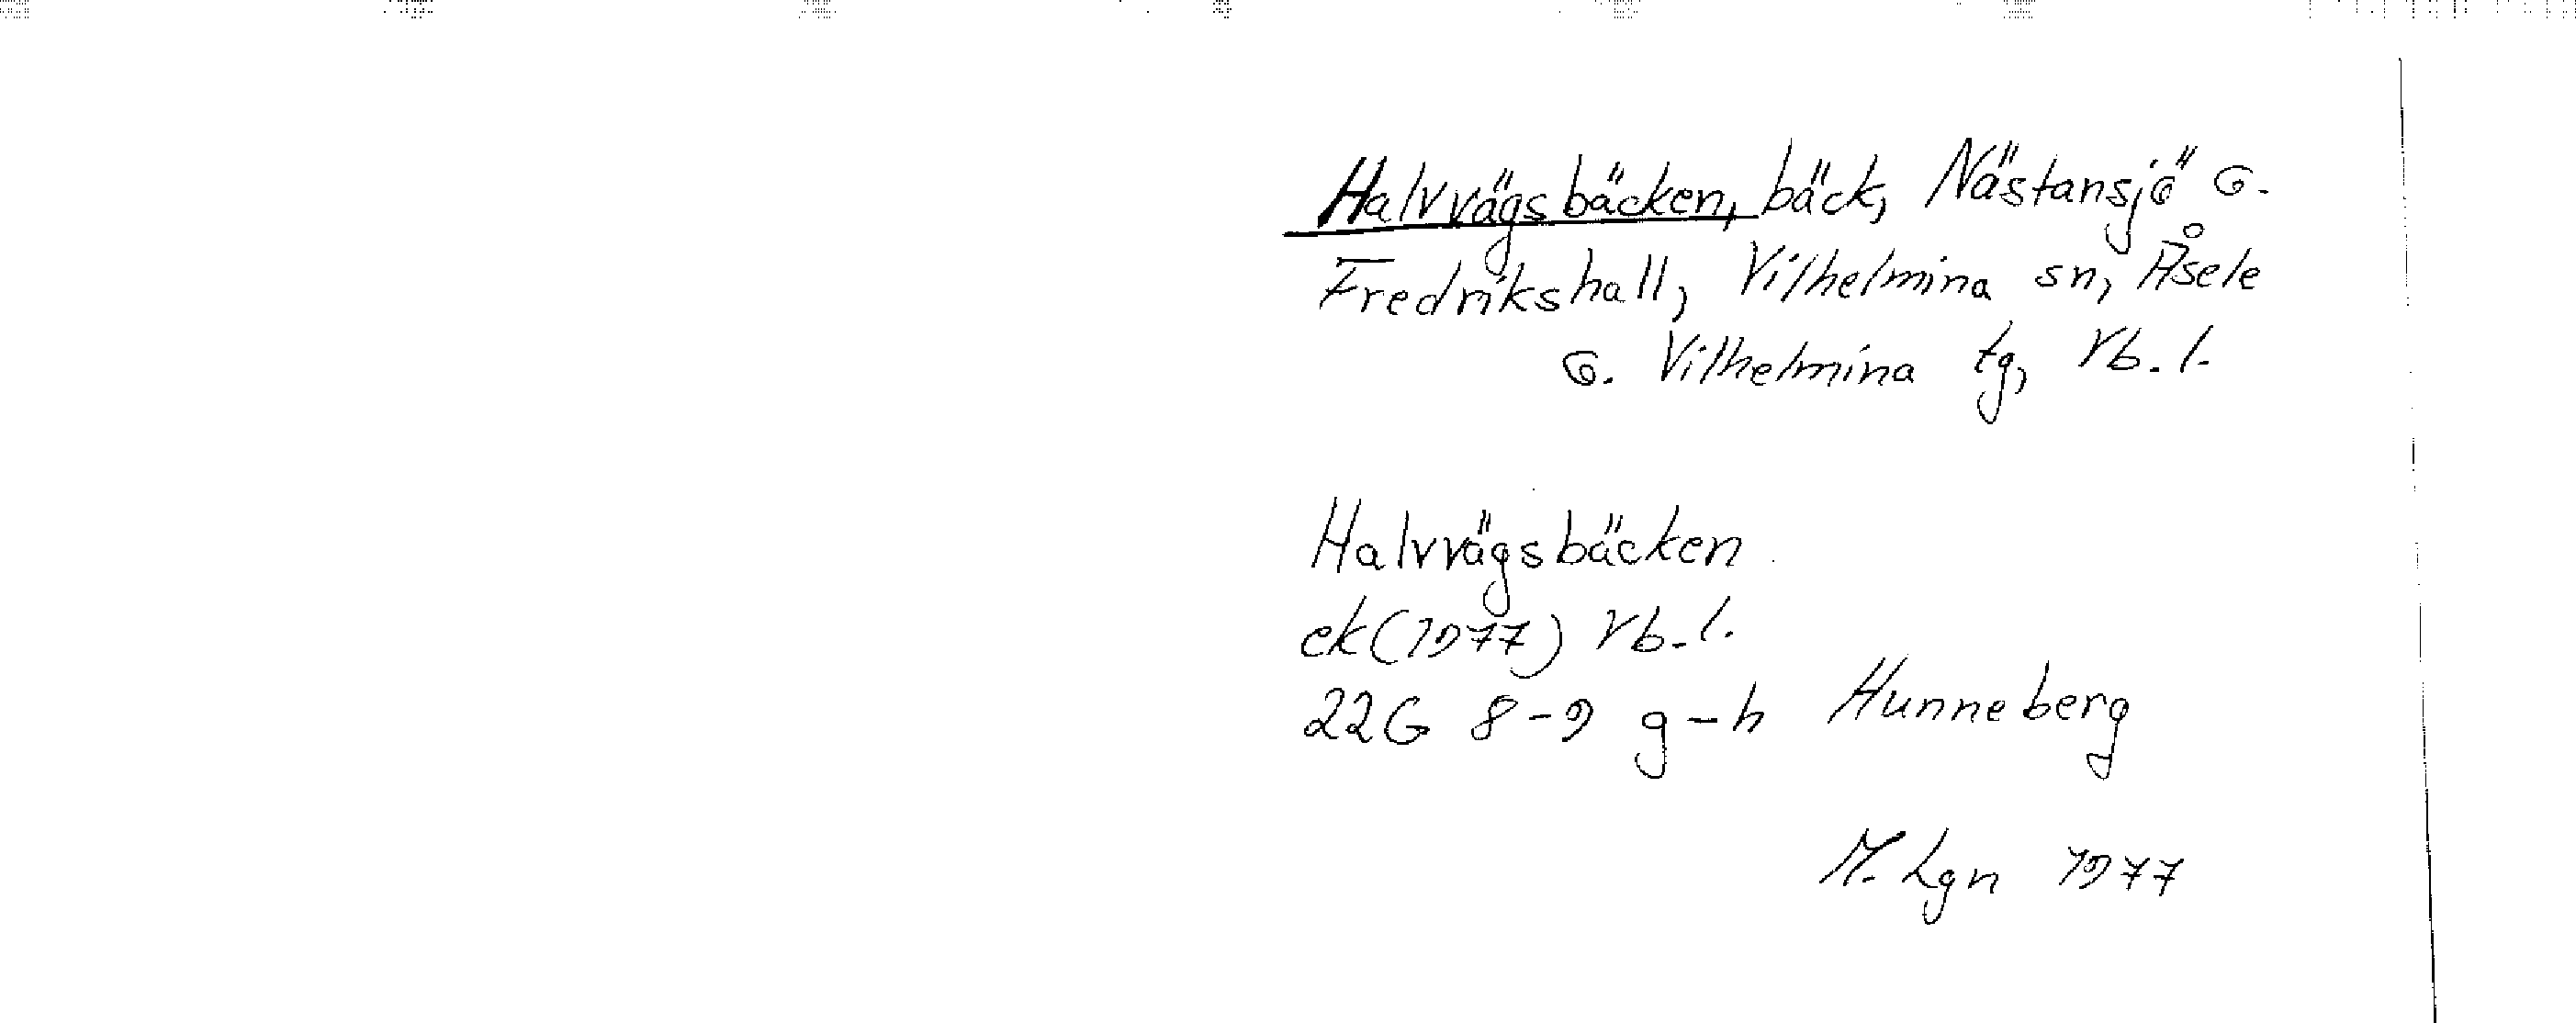 Halvvägsbäcken, bäck, Nästansjö o.
Fredrikshall, Vilhelmina sn, Åsele
o. Vilhelmina tg, Vb. l.
Halvvägsbäcken
ek (1977) Vb. l.
22G 8-9 g-h Hunneberg
M. Lgn 1977